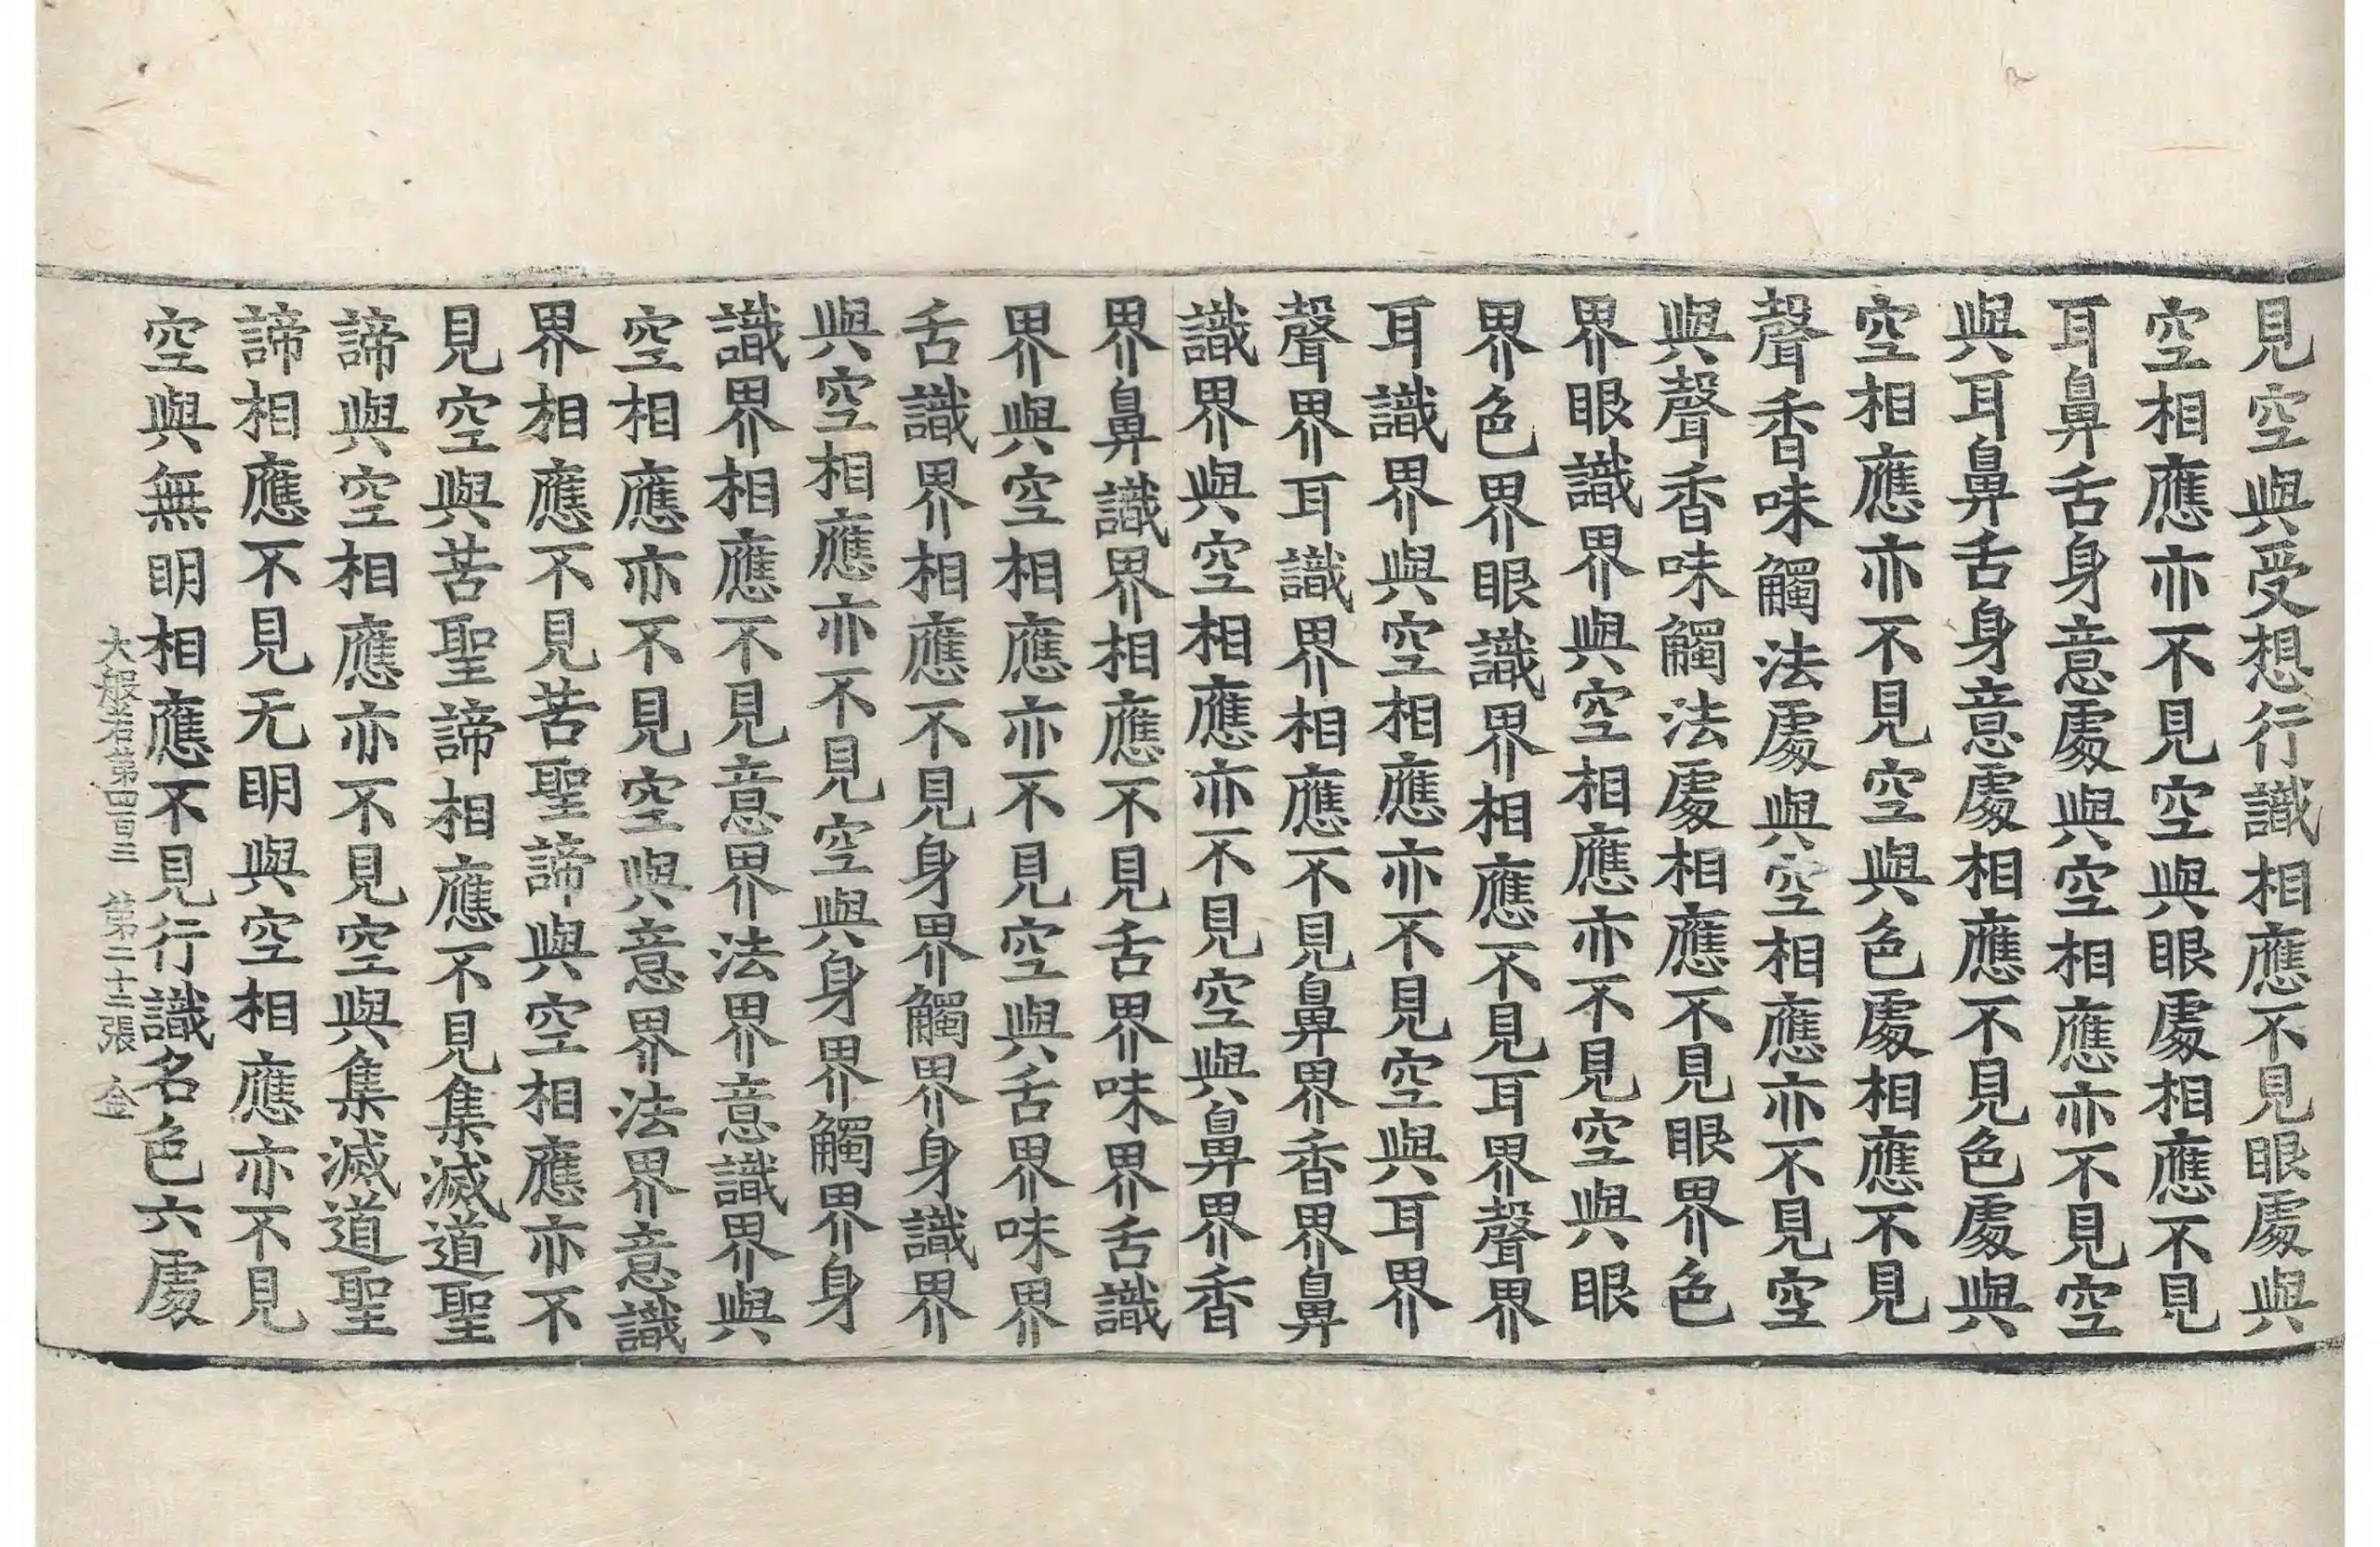 見空與受想行識相應不見眼處與
空相應亦不見空與眼處相應不見
耳鼻舌身意處與空相應亦不見空
與耳鼻舌身意處相應不見色處與
空相應亦不見空與色處相應不見
聲香味觸法處與空相應亦不見空
與聲香味觸法處相應不見眼界色
界眼識界與空相應亦不見空與眼
界色界眼識界相應不見耳界聲界
耳識界與空相應亦不見空與耳界
聲界耳識界相應不見鼻界香界鼻
識界與空相應亦不見空與鼻界香
界鼻識界相應不見舌界味界舌識
界與空相應亦不見空與舌界味界
舌識界相應不見身界觸界身識界
與空相應亦不見空與身界觸界身
識界相應不見意界法界意識界與
空相應亦不見空與意界法界意識
界相應不見苦聖諦與空相應亦不
見空與苦聖諦相應不見集滅道聖
諦與空相應亦不見空與集滅道聖
諦相應不見无明與空相應亦不見
空與無明相應不見行識名色六處
大般若第四百三 第二十二張 金